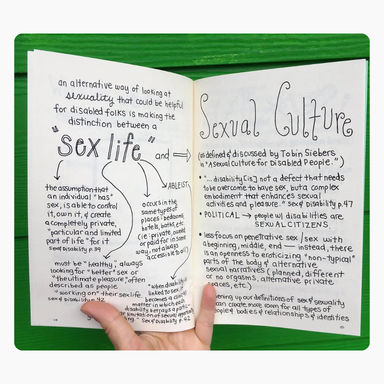 an alternative way of looking at
sexuality that could be helpful
for disabled folks is making the
distinction between a
"sex life" and
the assumption that
an individual "has"
sex, is able to control
it, own it, & create
a completely private,
"particular and limited
part of life" for it
Sex & Disability p.39
ABLEIST
occurs in the
same types of
places: bedrooms,
hotels, baths, etc.
(ie: private, owned
or paid for in some
way, not always
accessible to all)
must be "healthy", always
looking for "better" sex or
"the ultimate pleasure" often
described as people
"working on" their sex life
sex & Disability p.42
"when disability is
linked to sex, it
becomes a clinical
matter in which each
disability betrays a
limitation of sexual
Sex & Disability p.42
Sexual Culture
(as defined & discussed by Tobin Siebers
in "A Sexual Culture for Disabled People.")
"... disability [is] not a defect that needs
to be overcome to have sex, but a complex
embodiment that enhances sexual
activities and pleasure." sex & disability p.47
POLITICAL → people w/ disabilities are
SEXUAL CITIZENS.
less focus on penetrative sex / sex with a
beginning, middle, end — instead, there
is an openness to eroticizing "non-typical"
parts of the body & alternative
sexual narratives (planned, different
or no orgasms, alternative private
spaces, etc.)
up our definitions of sex & sexuality
can create more room for all types of
people & bodies & relationships & identities